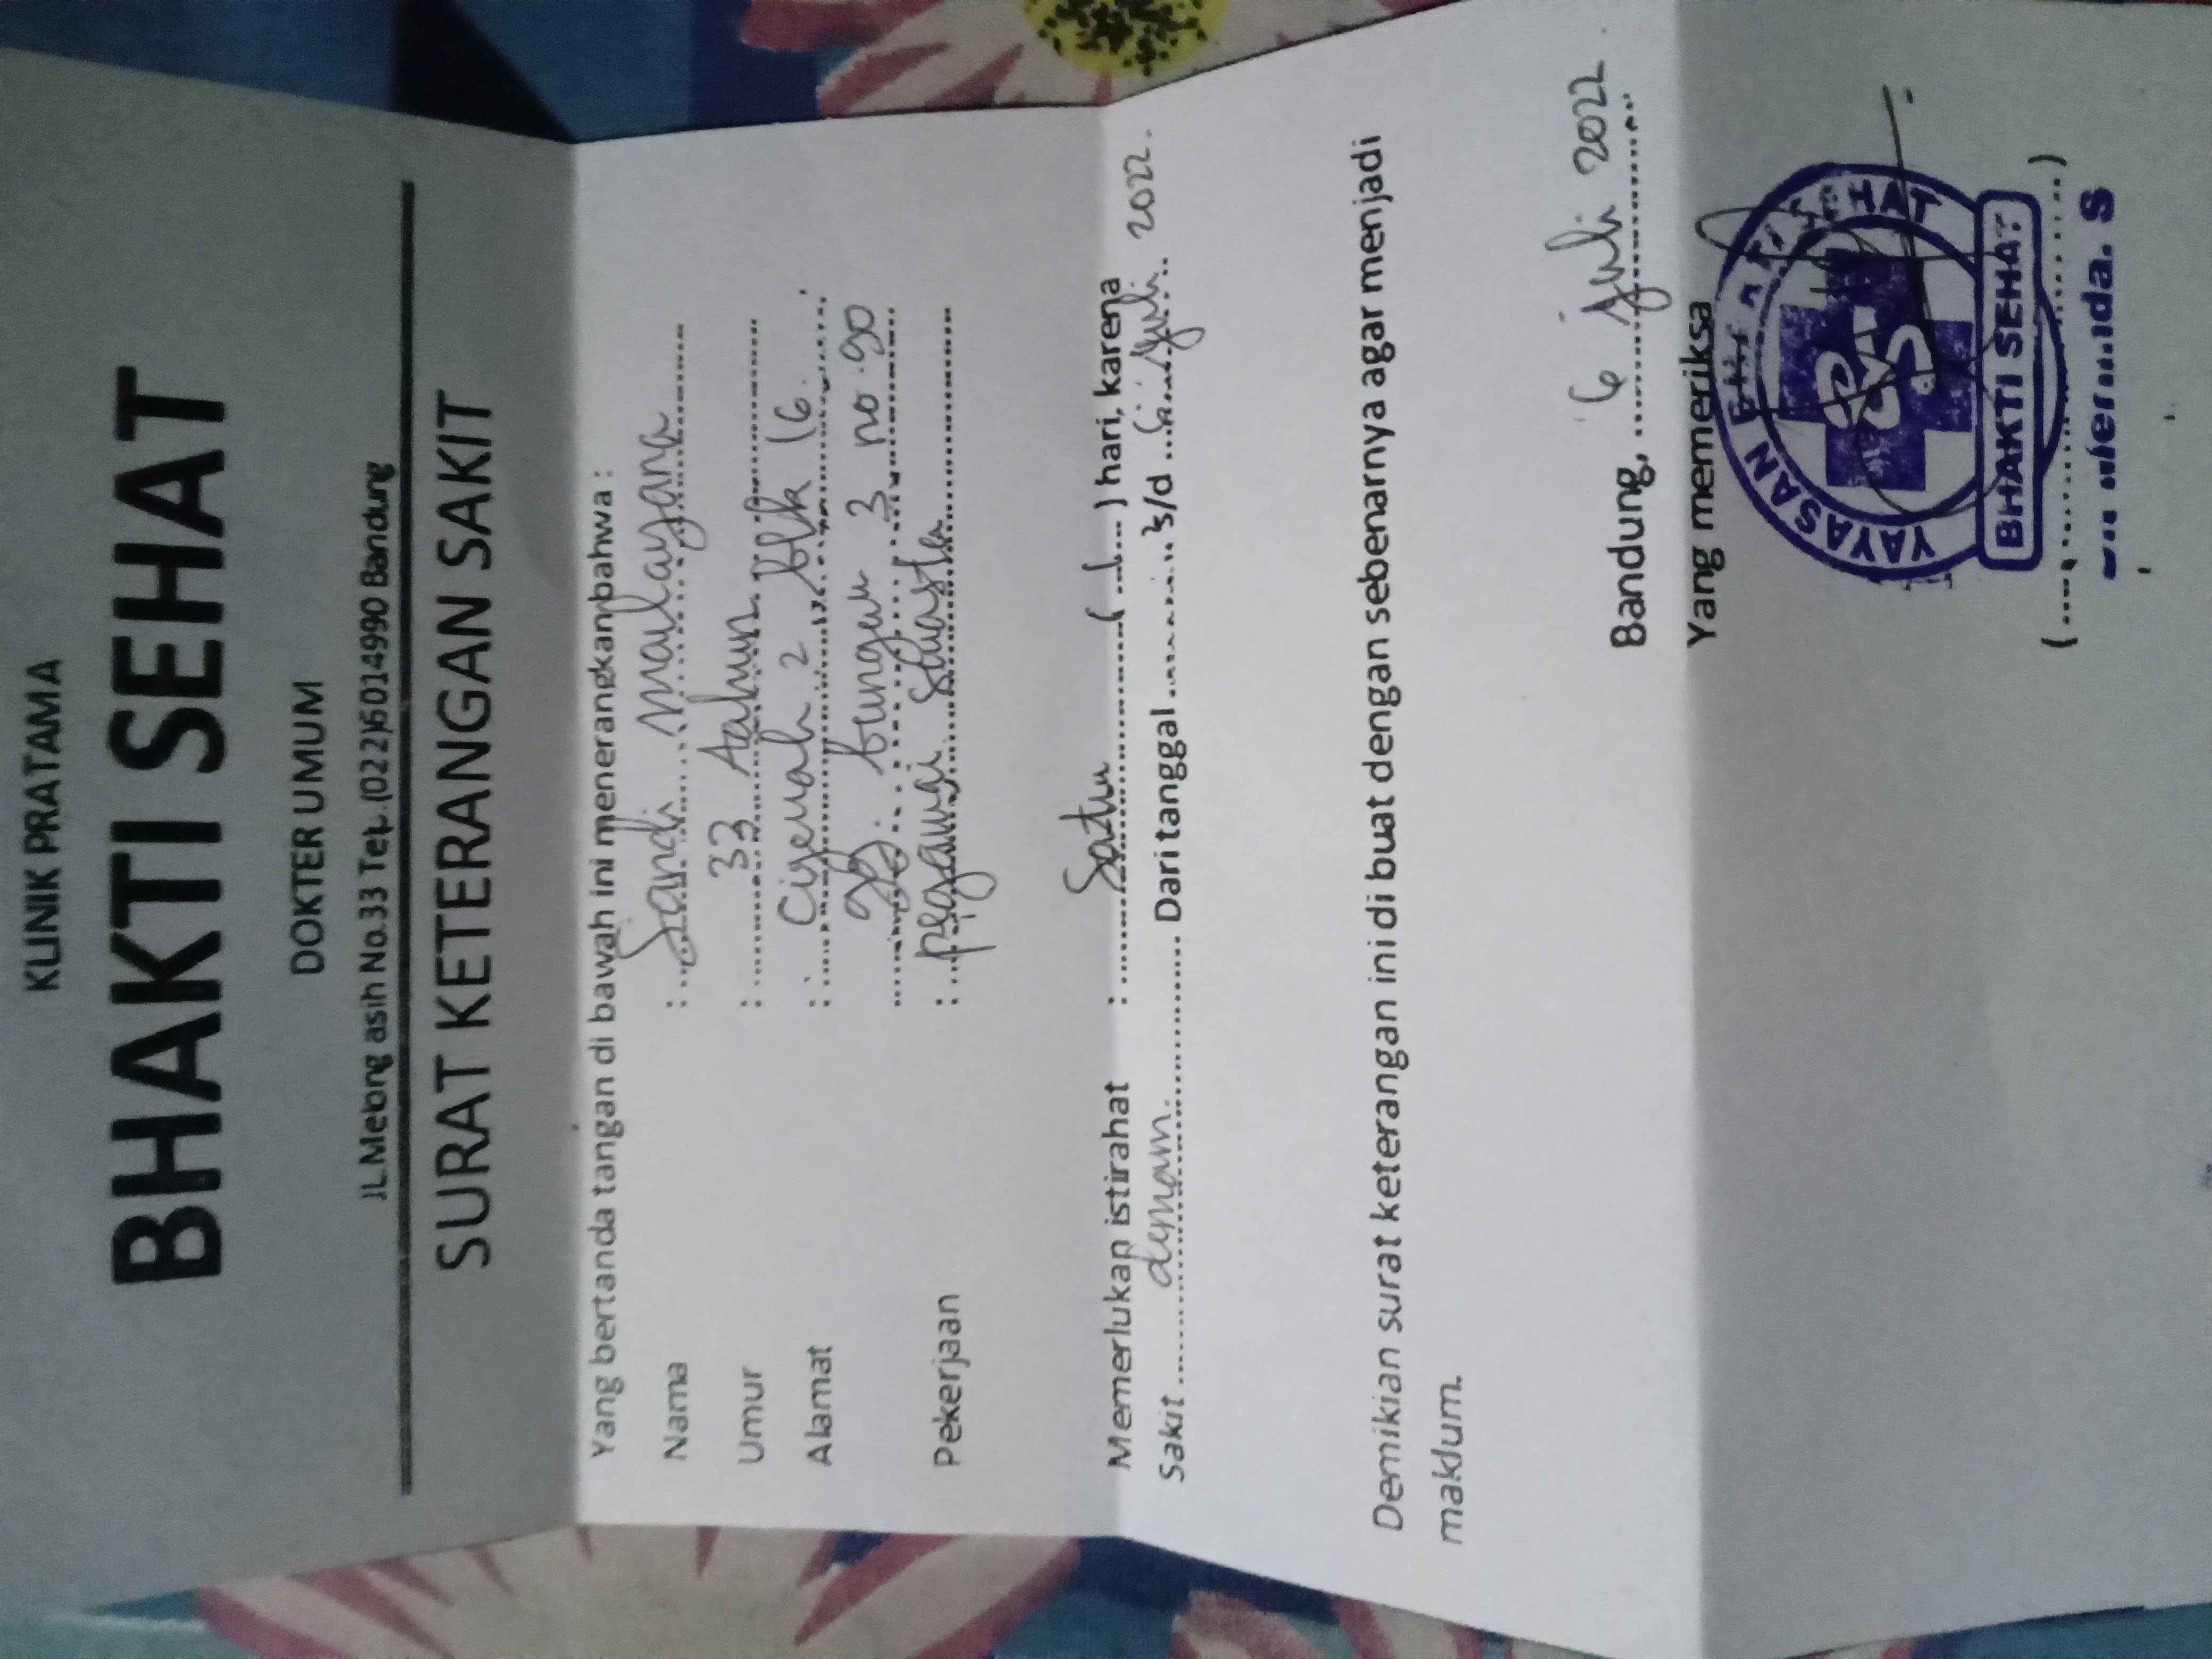 KLINIK PRATAMA
BHAKTI SEHAT
DOKTER UMUM
JL.Melong asih No.33 Telp.(022)6014990 Bandung
SURAT KETERANGAN SAKIT
Yang bertanda tangan di bawah ini menerangkan bahwa :
Nama : Sandi maulayana
Umur : 33 Tahun
Alamat : Cigenah 2 blk 16.
gg. bungur 3 no.90
Pekerjaan : pegawai swasta
Memerlukan istirahat : Satu ( 1 ) hari, karena
Sakit demam. Dari tanggal s/d 6 juli 2022.
Demikian surat keterangan ini di buat dengan sebenarnya agar menjadi
maklum.
Bandung, 6 juli 2022.
Yang memeriksa
YAYASAN BHAKTI SEHAT
BHAKTI SEHAT
(..........)
S